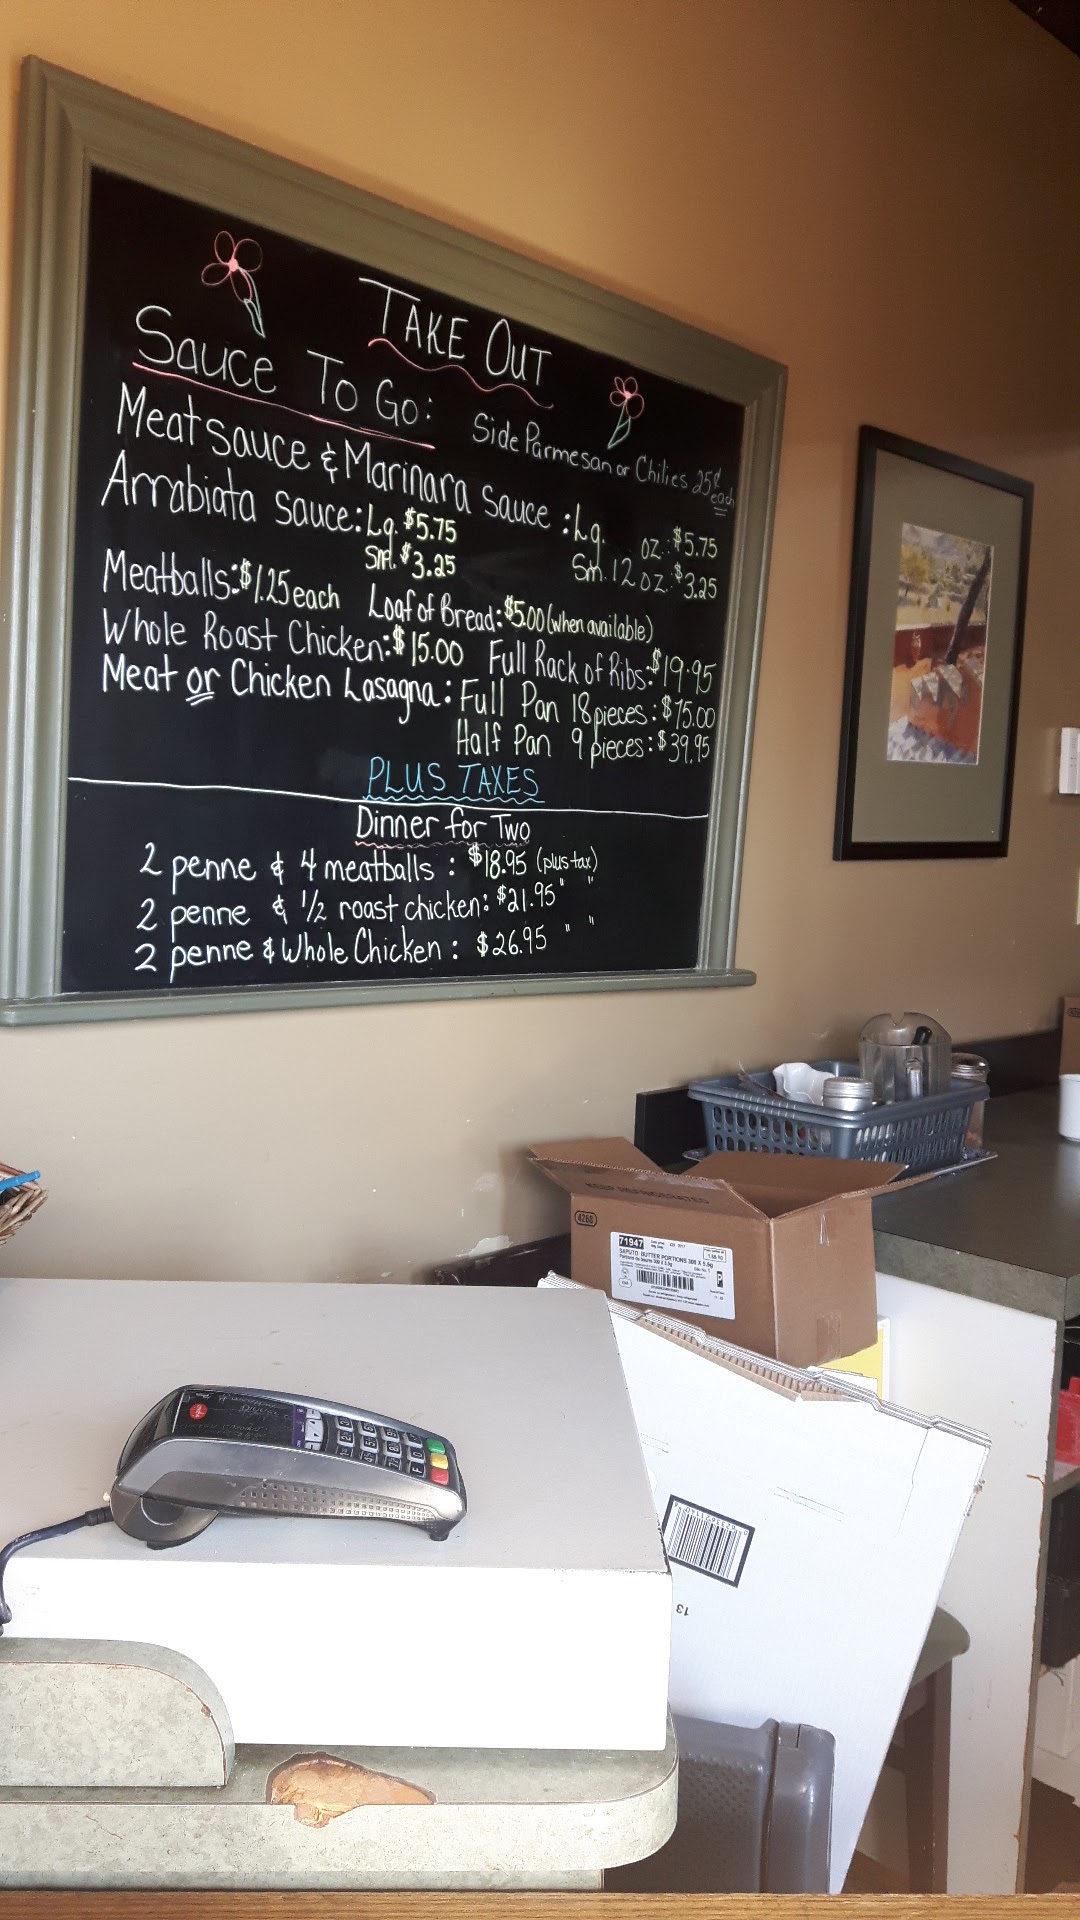 TAKE OUT
Sauce To Go:
Side Parmesan or Chilies 25¢ each
Meatsauce & Marinara sauce : Lg. oz.: $5.75
Sm. 12 oz.: $3.25
Arrabiata sauce: Lg. $5.75
Sm. $3.25
Meatballs: $1.25 each Loaf of Bread: $5.00 (when available)
Whole Roast Chicken: $15.00 Full Rack of Ribs: $19.95
Meat or Chicken Lasagna: Full Pan 18 pieces: $75.00
Half Pan 9 pieces: $39.95
PLUS TAXES
Dinner for Two
2 penne & 4 meatballs : $18.95 (plus tax)
2 penne & 1/2 roast chicken: $21.95 " "
2 penne & Whole Chicken : $26.95 " "
KEEP REFRIGERATED
4268
71947
SAPUTO BUTTER PORTIONS 300 X 5.5g
P
13